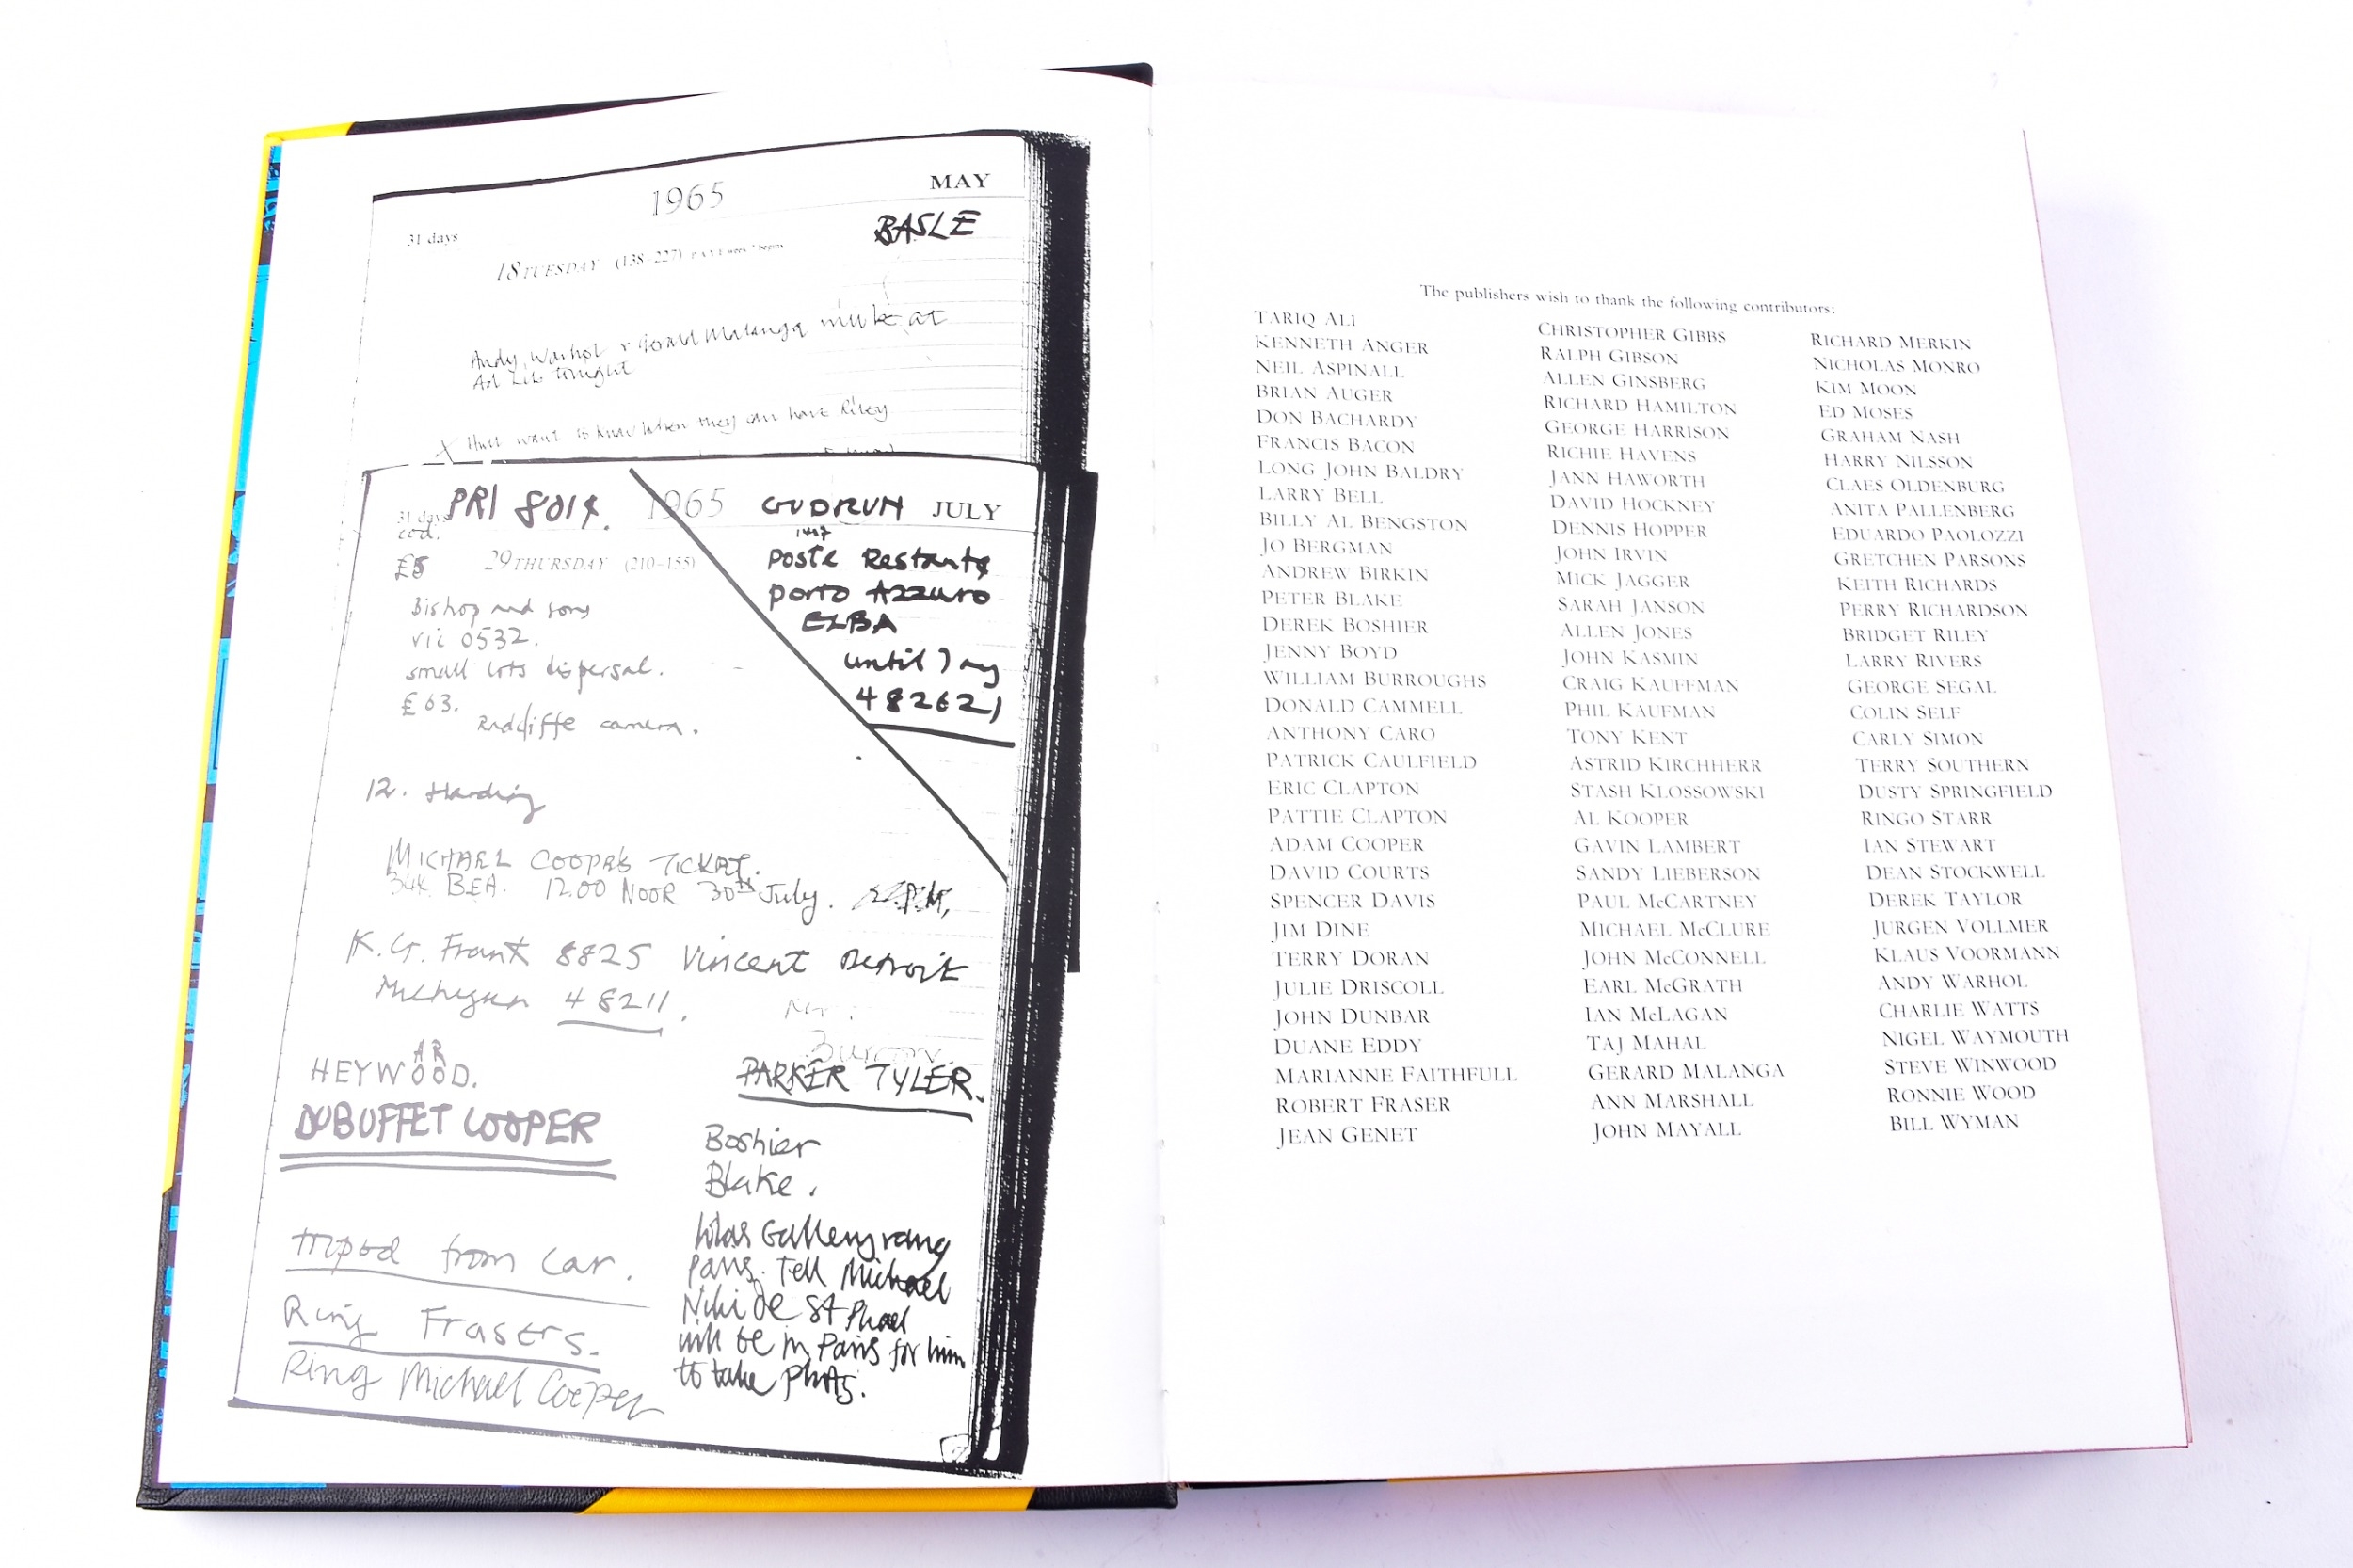 1965
MAY
BASLE
31 days
18 TUESDAY (138–227)
Andy Warhol + Gerald Malanga will be at
Ad Lib tonight
X Hull want to know when they can have Riley
PRI 8014.
1965
GUDRUN JULY
31 days
£5
29 THURSDAY (210–155)
Poste Restante
Porto Azzuro
ELBA
until
482621
Bishop and sons
vic 0532.
small lots dispersal.
£63.
Radcliffe camera.
12. Harding
MICHAEL COOPERS TICKET.
BEA. 12.00 NOOR 30th July.
K. G. Frank 8825 Vincent Detroit
Michigan 48211.
Mr.
HEYWOOD.
AR
PARKER TYLER.
DUBUFFET COOPER
Boshier
Blake.
tripod from car.
Ring Frasers.
Ring Michael Cooper
Gallery rang
Paris. Tell Michael
Niki De St Phael
will be in Paris for him
to take photos.
The publishers wish to thank the following contributors:
TARIQ ALI
KENNETH ANGER
NEIL ASPINALL
BRIAN AUGER
DON BACHARDY
FRANCIS BACON
LONG JOHN BALDRY
LARRY BELL
BILLY AL BENGSTON
JO BERGMAN
ANDREW BIRKIN
PETER BLAKE
DEREK BOSHIER
JENNY BOYD
WILLIAM BURROUGHS
DONALD CAMMELL
ANTHONY CARO
PATRICK CAULFIELD
ERIC CLAPTON
PATTIE CLAPTON
ADAM COOPER
DAVID COURTS
SPENCER DAVIS
JIM DINE
TERRY DORAN
JULIE DRISCOLL
JOHN DUNBAR
DUANE EDDY
MARIANNE FAITHFULL
ROBERT FRASER
JEAN GENET
CHRISTOPHER GIBBS
RALPH GIBSON
ALLEN GINSBERG
RICHARD HAMILTON
GEORGE HARRISON
RICHIE HAVENS
JANN HAWORTH
DAVID HOCKNEY
DENNIS HOPPER
JOHN IRVIN
MICK JAGGER
SARAH JANSON
ALLEN JONES
JOHN KASMIN
CRAIG KAUFFMAN
PHIL KAUFMAN
TONY KENT
ASTRID KIRCHHERR
STASH KLOSSOWSKI
AL KOOPER
GAVIN LAMBERT
SANDY LIEBERSON
PAUL McCARTNEY
MICHAEL McCLURE
JOHN McCONNELL
EARL McGRATH
IAN McLAGAN
TAJ MAHAL
GERARD MALANGA
ANN MARSHALL
JOHN MAYALL
RICHARD MERKIN
NICHOLAS MONRO
KIM MOON
ED MOSES
GRAHAM NASH
HARRY NILSSON
CLAES OLDENBURG
ANITA PALLENBERG
EDUARDO PAOLOZZI
GRETCHEN PARSONS
KEITH RICHARDS
PERRY RICHARDSON
BRIDGET RILEY
LARRY RIVERS
GEORGE SEGAL
COLIN SELF
CARLY SIMON
TERRY SOUTHERN
DUSTY SPRINGFIELD
RINGO STARR
IAN STEWART
DEAN STOCKWELL
DEREK TAYLOR
JURGEN VOLLMER
KLAUS VOORMANN
ANDY WARHOL
CHARLIE WATTS
NIGEL WAYMOUTH
STEVE WINWOOD
RONNIE WOOD
BILL WYMAN